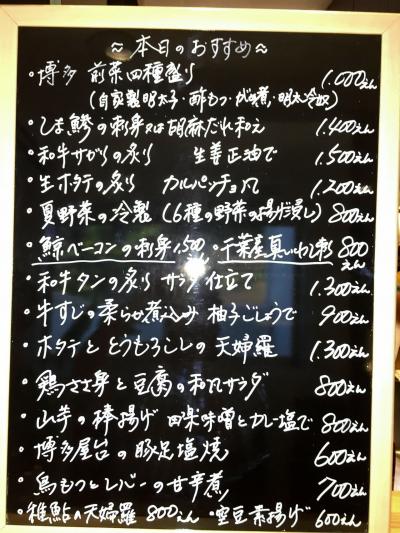 ～本日のおすすめ～
・博多 前菜四種盛り 1.000えん
(自家製明太子・酢もつ・がめ煮・明太冷奴)
・しま鯵の刺身又は胡麻だれ和え 1.400えん
・和牛サガリの炙り 生姜正油で 1.500えん
・生ホタテの炙り カルパッチョ風 1.200えん
・夏野菜の冷製 (6種の野菜の揚げ浸し) 800えん
・鯨ベーコンの刺身 1,500えん ・千葉産真いわし刺 800えん
・和牛タンの炙り サラダ仕立て 1.300えん
・牛すじの柔らか煮込み 柚子ごしょうで 900えん
・ホタテととうもろこしの天婦羅 1.300えん
・鶏ささ身と豆腐の和風サラダ 800えん
・山芋の棒揚げ 田楽味噌とカレー塩で 800えん
・博多屋台の豚足塩焼 600えん
・鳥もつとレバーの甘辛煮 700えん
・稚鮎の天婦羅 800えん ・空豆素揚げ 600えん